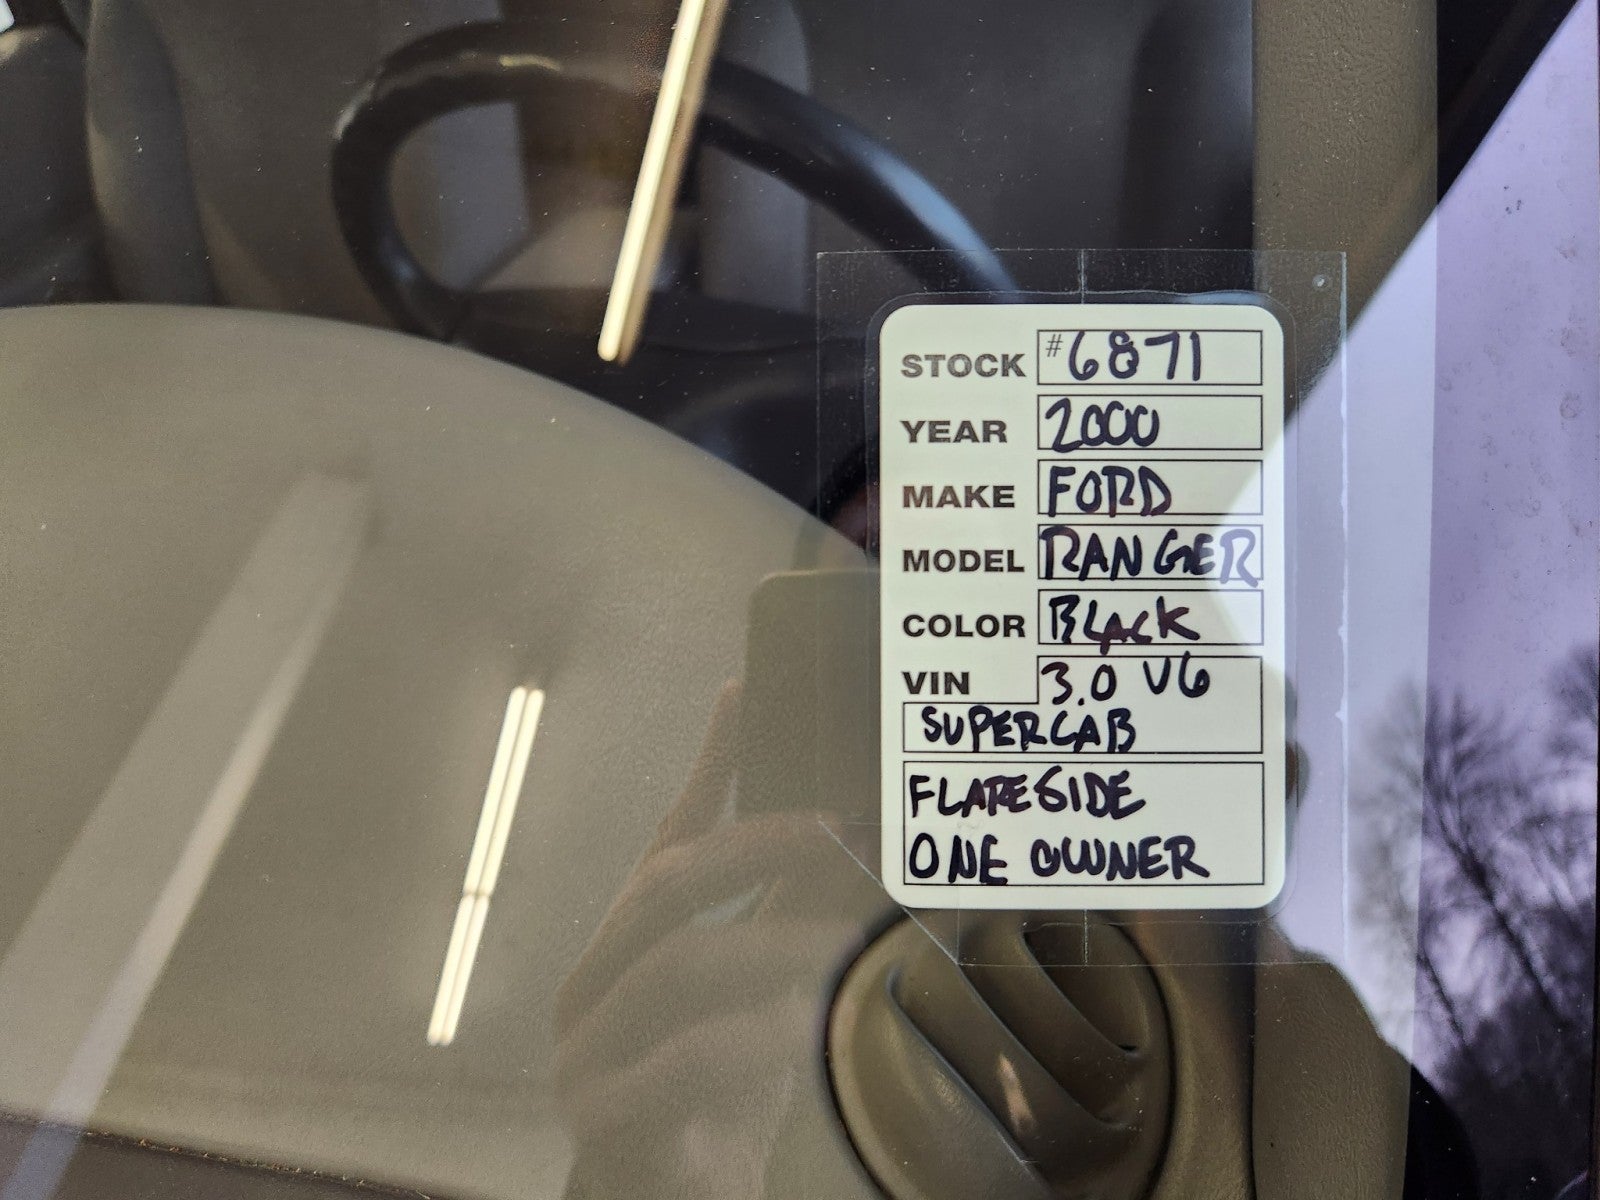 STOCK #6871
YEAR 2000
MAKE FORD
MODEL RANGER
COLOR BLACK
VIN 3.0 V6
SUPERCAB
FLARESIDE
ONE OWNER